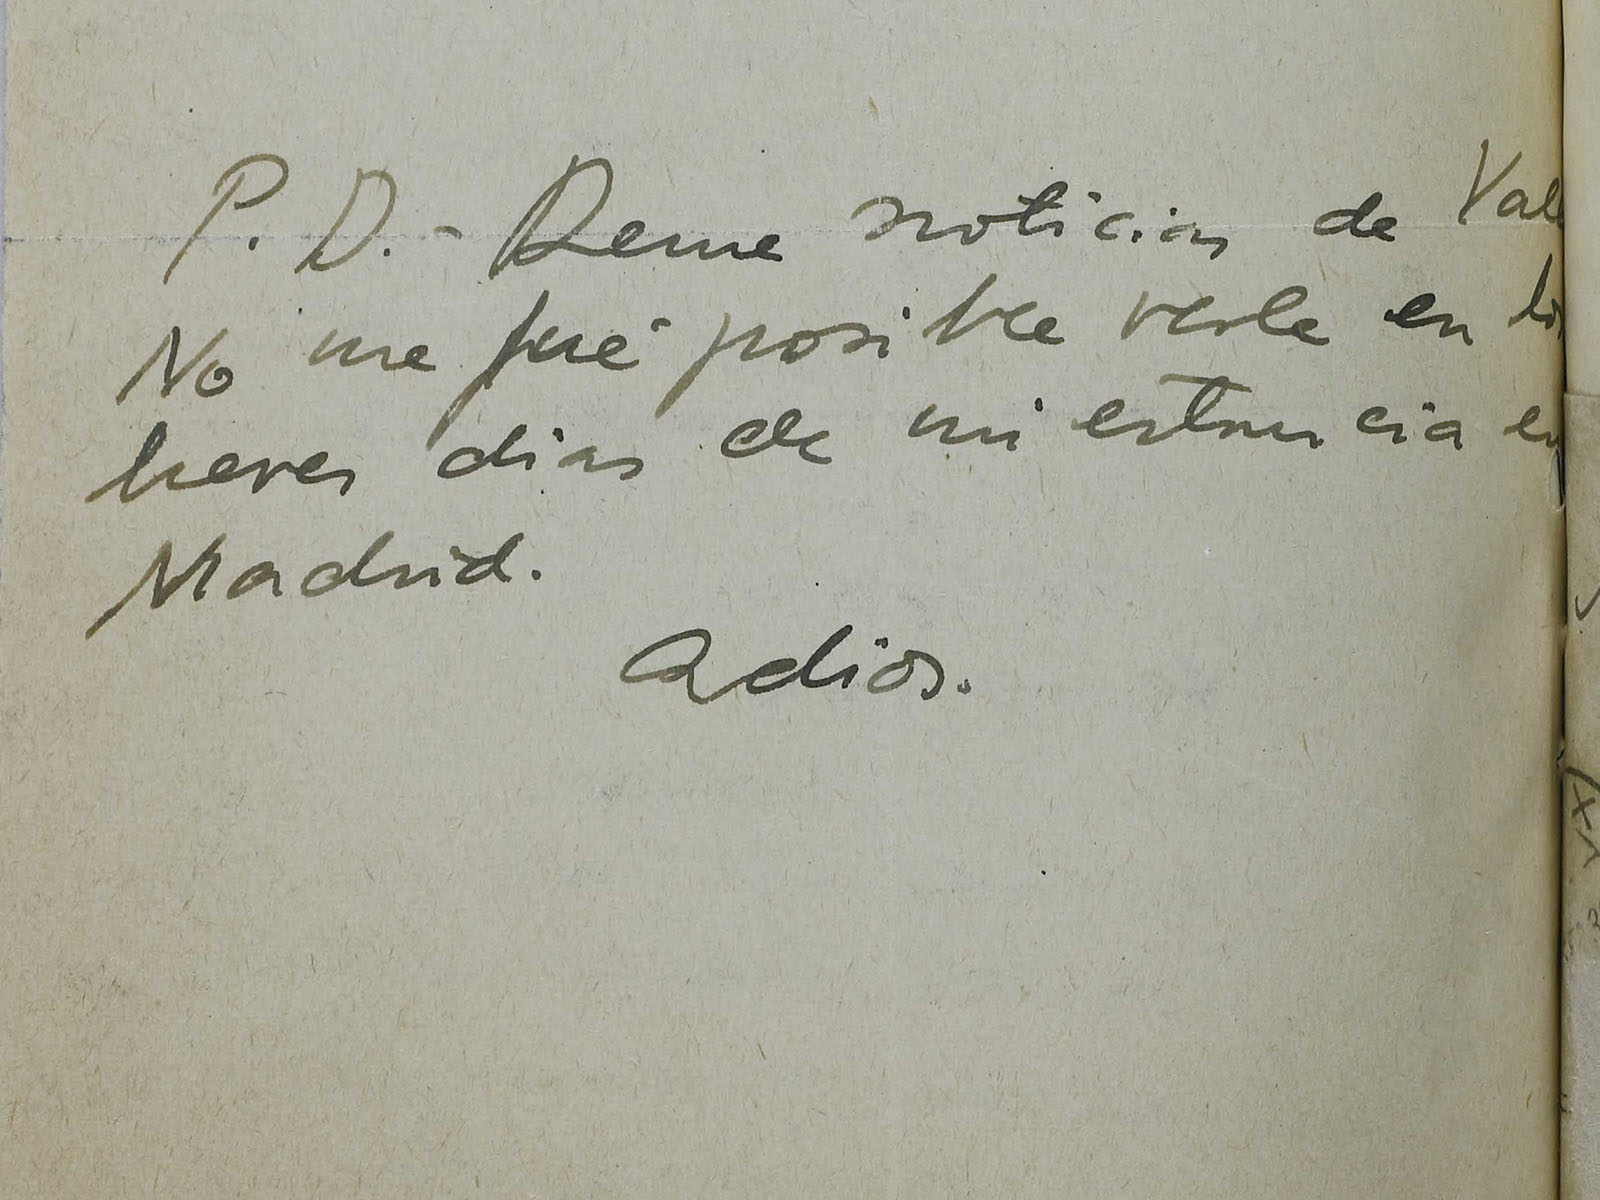 P. D.- Deme noticias de Vall
No me fué posible verle en los
breves dias de mi estancia en
Madrid.
Adios.